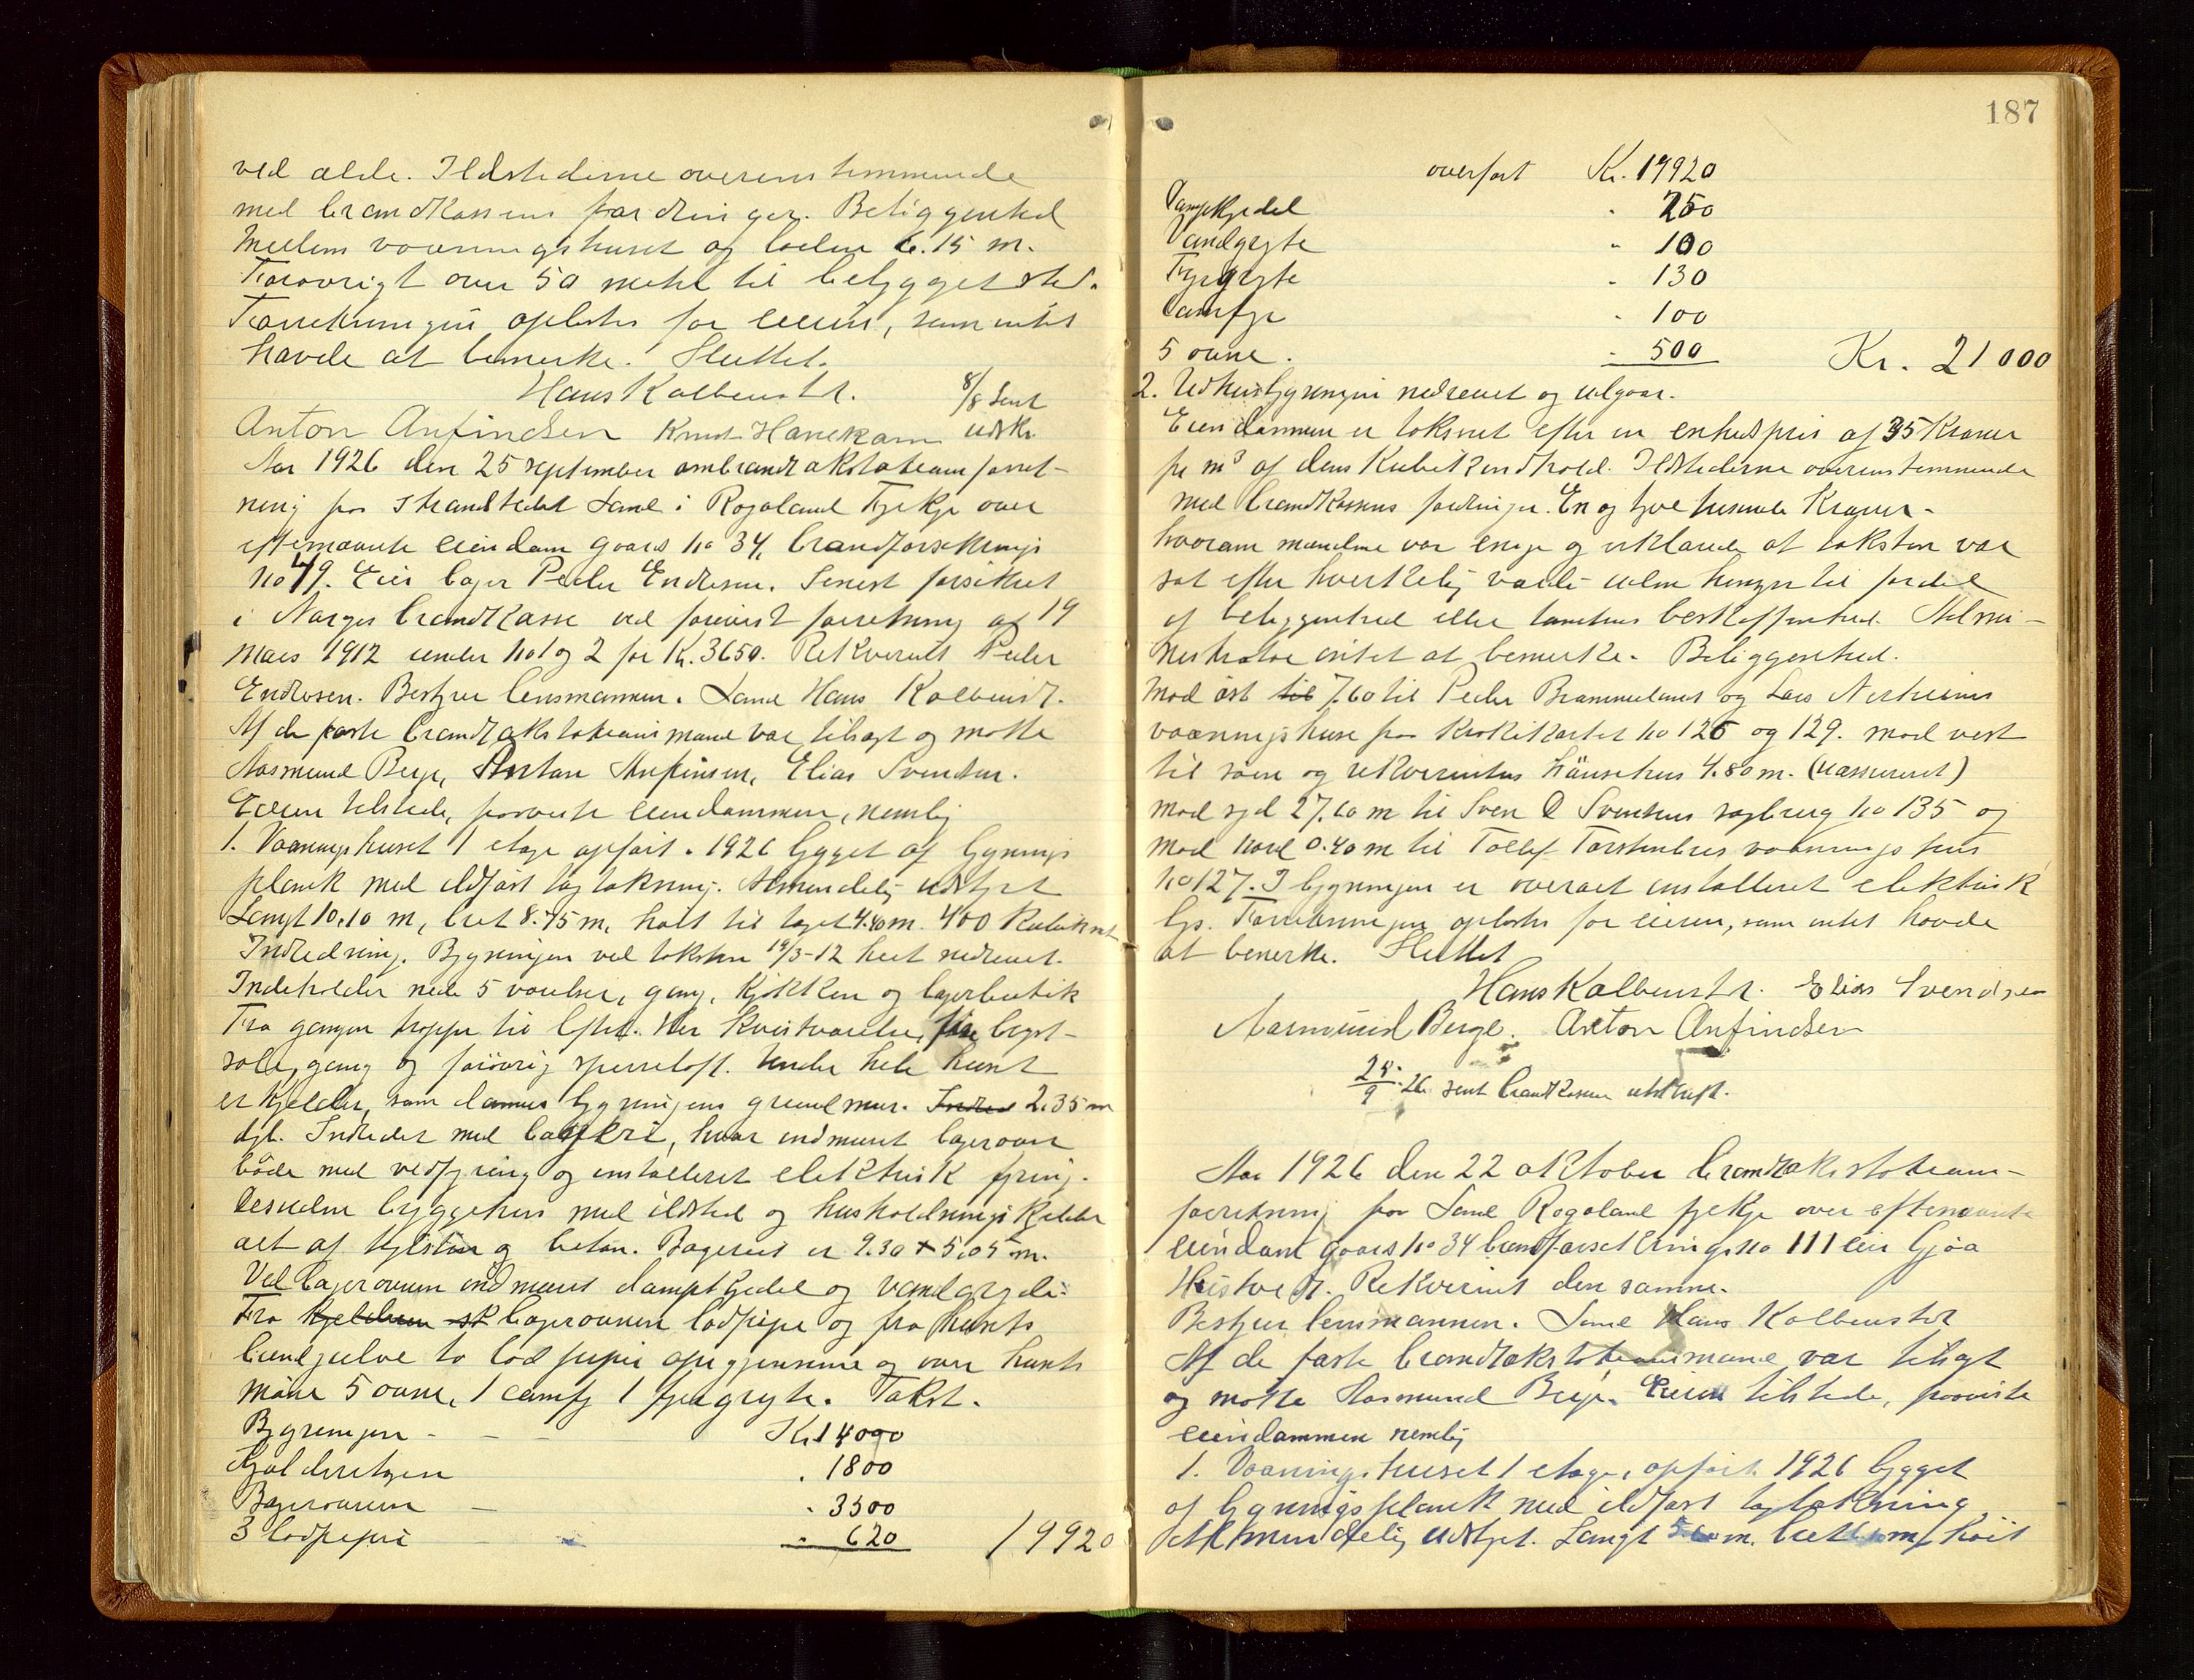 vedælde. Ildstederne overensstemmende
med brandkassens fordringer. Beliggenhed
Mellem vaaningshuset og loelen 6.15 m.
Forøvrigt over 50 meter til bebygget sted.
Forretningen oplæstes for eieren, som intet
havde at bemerke. Sluttet.
Hans Kolbenstvt. 8/8 sent
Anton Anfindsen Knut Hanekam udskr.
Aar 1926 den 25 september ombrandtakstationsforret-
ning paa Strandstedet Sand i Rogaland Fylke over
efternævnte eiendom gaards no 34, brandforsikrings
no 79. Eier bager Peder Endresen. Senest forsikret
i Norges brandkasse ved forevist forretning af 19
Mars 1912 under no 1 og 2 for Kr. 3650. Rekvirent Peder
Endresen. Bestyrer lensmannen. Sand Hans Kolbenstvt.
Af de faste brandtakstationsmænd var tilsagt og møtte
Aasmund Berge, Anton Anfinsen, Elias Svendsen.
Eieren tilstede, paaviste eiendommen, nemlig
1. Vaaningshuset 1 etage opført 1926 bygget af bygnings
plank med ildfast tagtækning. Almindelig udstyret
Længt 10.10 m, bret 8.75 m, høit til taget 4.40 m. 400 Kubikmt
Indredning. Bygningen ved taksten 19/3-12 helt nedrevet.
Indeholder nede 5 værelser, gang, kjøkken og bagerbutik
Fra gangen trappe til loftet. Her kvistværelse, bryst-
sale, gang og forøvrig sperreloft. Under hele huset
er kjelder, som danner bygningens grundmur. Indred 2.35 m
dyb. Indredet med bageri, hvor indmuret bagerovn
både med vedfyring og installeret elektrisk fyring.
Desuden bryggehus med ildsted og husholdningskjelder
alt af og beton. Bageriet er 9.30 + 5.05 m.
Ved bagerovnen indmuret dampkjedel og vandgryde.
Fra kjelderen st bagerovnen lodpipe og fra husets
to lodpiper opigjennem og over husets
måne 5 ovne, 1 camfy 1 fyrgryte. Takst.
Bygningen - - - Kr 14000
" 1800
Bagerovnen - " 3500
3 lodpiper " 620 19920
187
overført Kr. 19920
Dampkjedel " 250
Vandgryte " 100
Fyrgryte " 130
Camfyr " 100
5 ovne. " 500 Kr. 21000
2. Udhusbygningen nedrevet og udgaar.
Eiendommen er taksert efter en enhedspris af 35 Kroner
pr m³ af dens Kubikindhold. Ildstederne overensstemmende
med brandkassens fordringer. En og tyve tusende Kroner -
hvorom mændene var enige og erklærede at taksten var
sat efter hverkelig værdi uden hensyn til fordel
af beliggenhed eller tomtens beskaffenhed. Admi-
nistrator intet at bemerke. Beliggenhed.
Mod øst til 7.60 til Peder Brommelands og Lars Nerheims
vaaningshuse paa krokikartet no 126 og 129. mod vest
til søen og rekvirentens hønsehus 4.80 m. (uassureret)
mod syd 27.60 m til Sven O Svenhus sagbrug no 135 og
mod nord 0.40 m til Tollef Torstenbus vaaningshus
no 127. I bygningen er overalt installeret elektrisk
lys. Forretningen oplæstes for eieren, som intet havde
at bemerke. Sluttet
Hans Kolbenstvt. Elias Svendsen
Aasmund Berge. Anton Anfindsen
25/9-26 sent brandkassen utskrift.
Aar 1926 den 22 oktober brandtakstations-
forretning paa Sand Rogaland fylke over eftern­ævnte
eiendom gaards no 34 brandforsekringsno 111 eier Gjøa
Rekvirent den samme.
Bestyrer lensmannen. Sand Hans Kolbenstvt
Af de faste brandtakstationsmænd var tilsagt
og møtte Aasmund Berge. Eieren tilstede, paaviste
eiendommen nemlig
1. Vaaningshuset 1 etage, opført 1926 bygget
af bygningsplank med ildfast tagtækning
Almindelig udstyret. Længt 5.60 m. bret m, høit